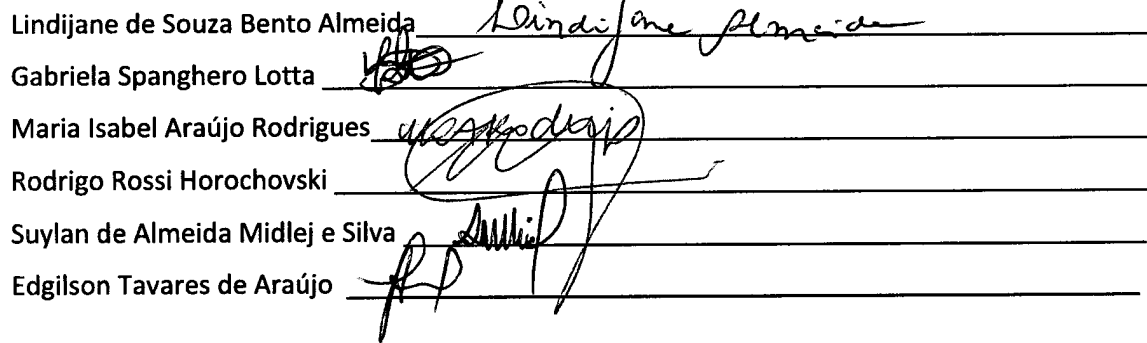 Lindijane de Souza Bento Almeida Lindijane Almeida
Gabriela Spanghero Lotta
Maria Isabel Araújo Rodrigues
Rodrigo Rossi Horochovski
Suylan de Almeida Midlej e Silva
Edgilson Tavares de Araújo